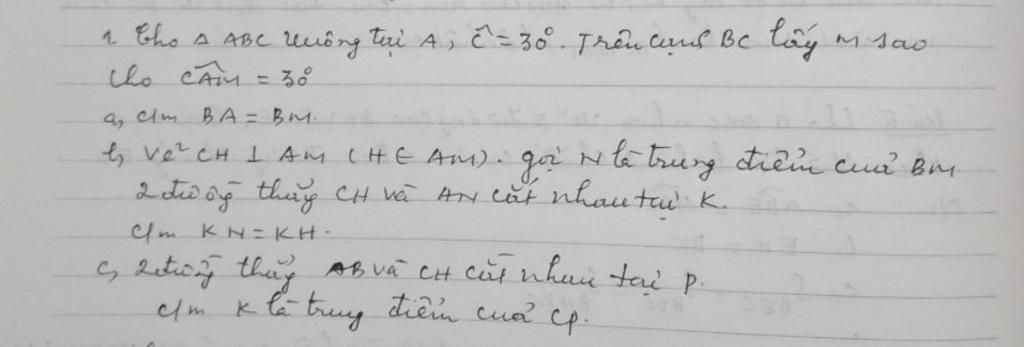 1. Cho Δ ABC vuông tại A, Ĉ = 30°. Trên cạnh BC lấy M sao
cho CÂM = 30°
a, c/m BA = BM.
b, Vẽ CH ⊥ AM (H ∈ AM). gọi N là trung điểm của BM
2 đường thẳng CH và AN cắt nhau tại K.
c/m KN = KH.
c, 2 đường thẳng AB và CH cắt nhau tại P.
c/m K là trung điểm của CP.